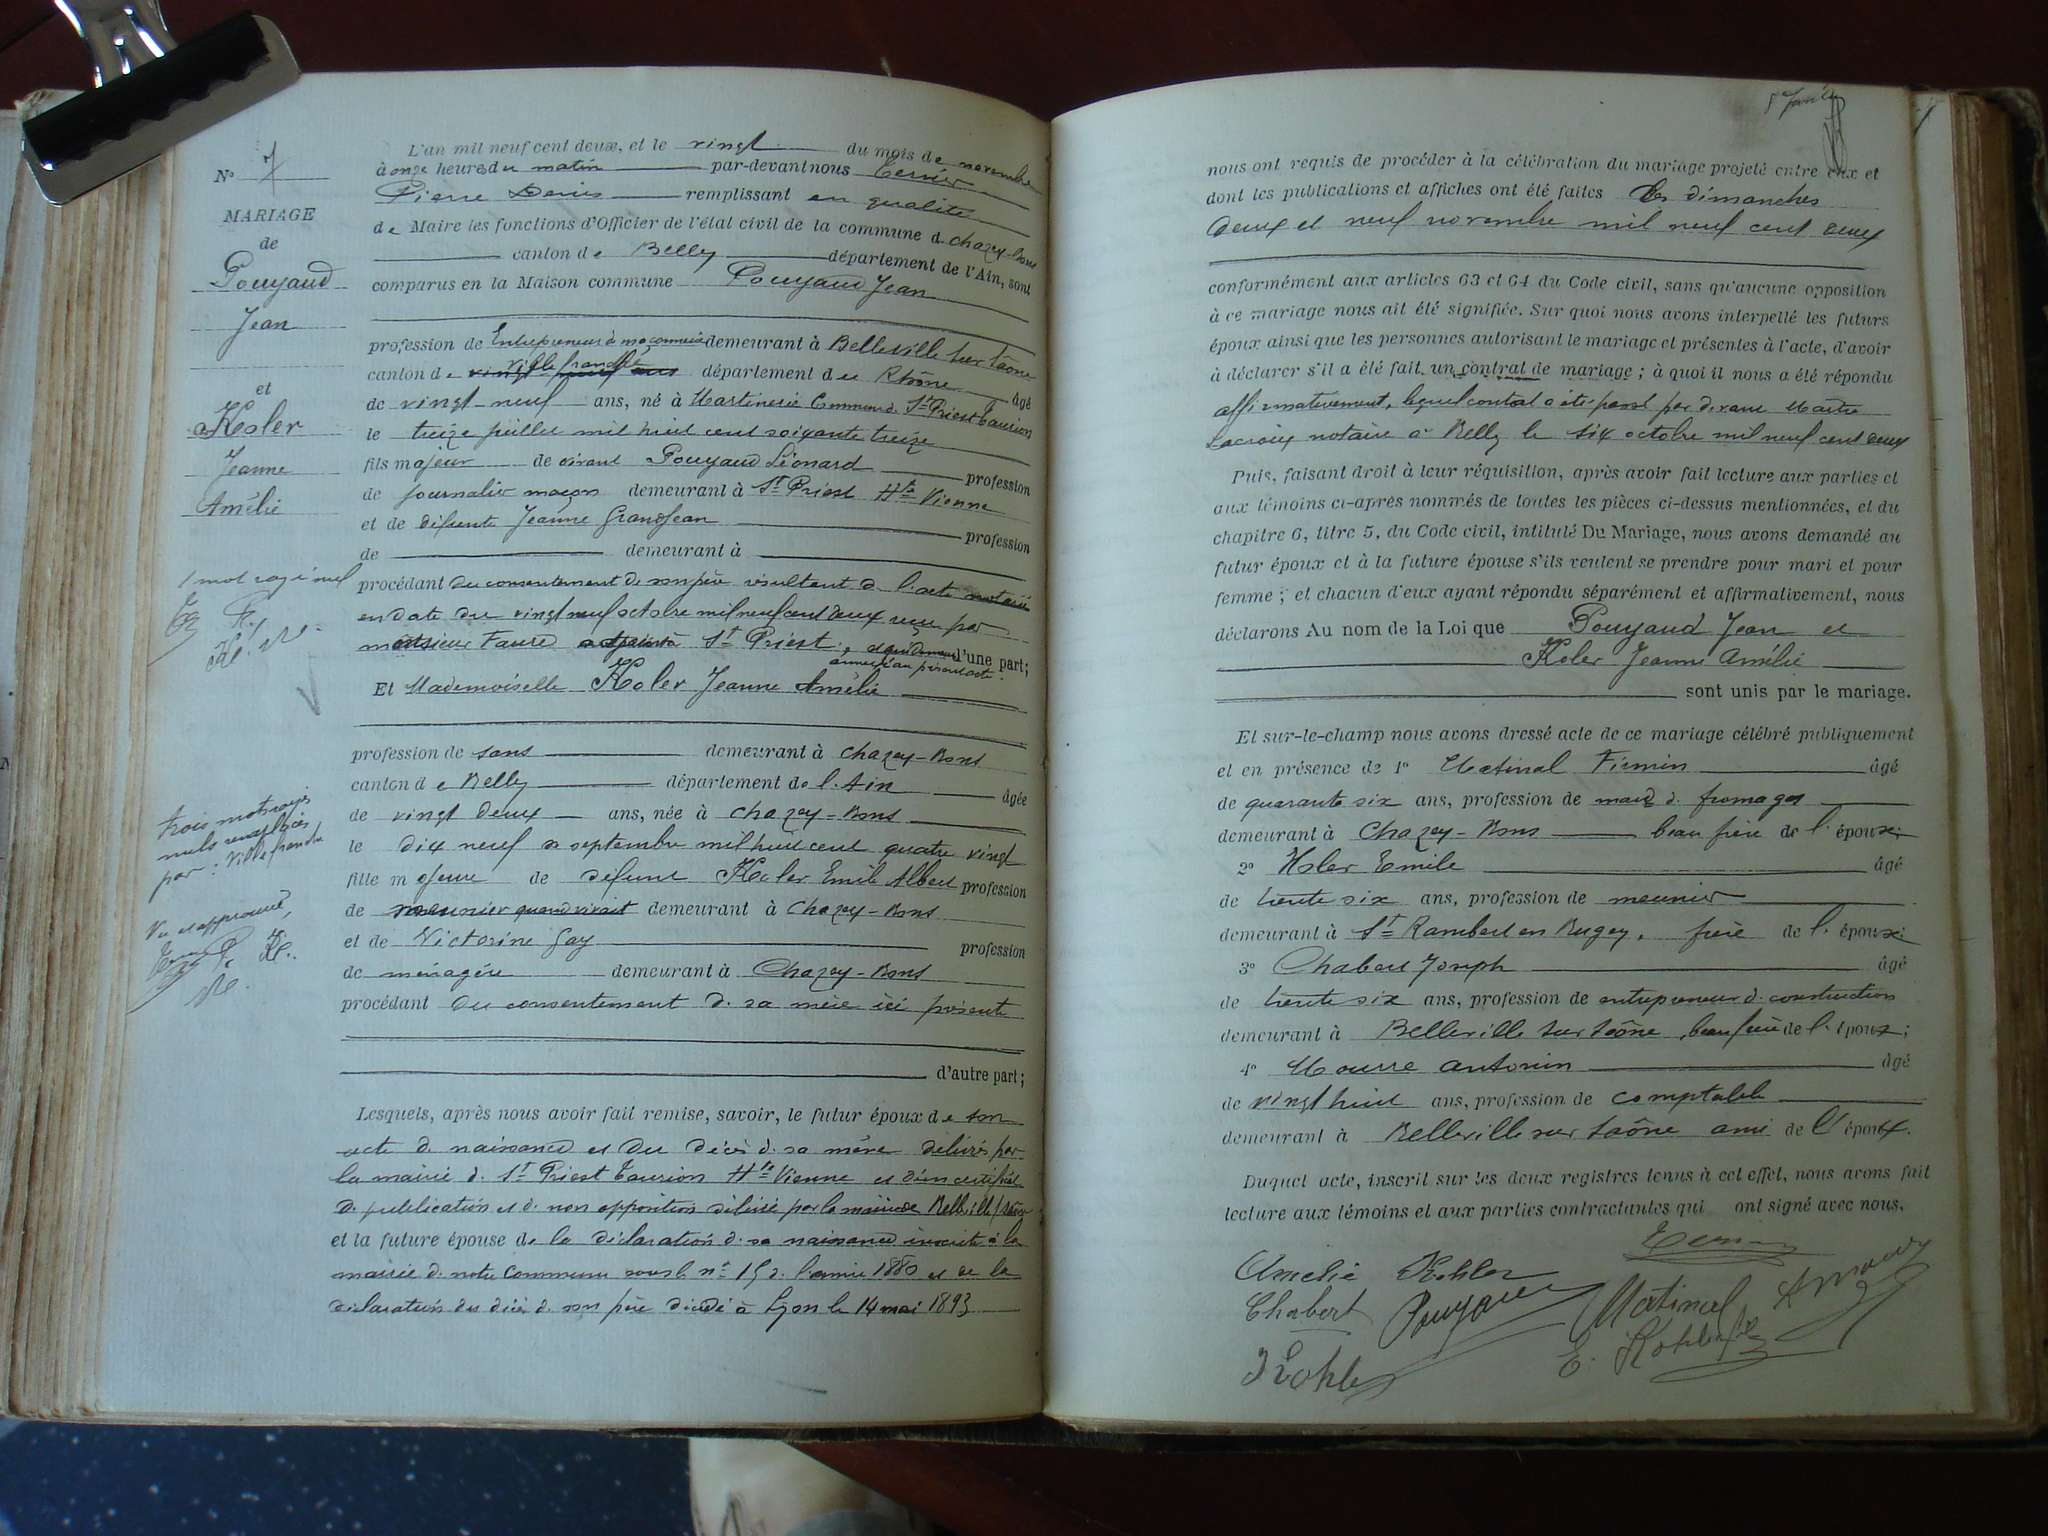 N° 7
MARIAGE
de
Pouyaud
Jean
et
Koler
Jeanne
Amélie
1 mot rayé nul
trois mots rayés
nuls remplacés
par : Villefranche
Vu et approuvé,
L'an mil neuf cent deux, et le vingt du mois de novembre
à onze heures du matin par-devant nous
Pierre Denis remplissant en qualité
de Maire les fonctions d'Officier de l'état civil de la commune de Chazey-Bons
canton de Belley département de l'Ain, sont
comparus en la Maison commune Pouyaud Jean
profession de Entrepreneur de maçonnerie demeurant à Belleville sur Saône
canton de Villefranche département du Rhône âgé
de vingt-neuf ans, né à Martinerie Commune de St Priest Taurion
le treize juillet mil huit cent soixante treize
fils majeur de vivant Pouyaud Léonard profession
de journalier maçon demeurant à St Priest Hte Vienne
et de défunte Jeanne Grandjean profession
de demeurant à
procédant du consentement de son père résultant de l'acte notarié
en date du vingt neuf octobre mil neuf cent deux reçu par
monsieur Faure St Priest, d'une part;
annexé au présent acte.
Et Mademoiselle Koler Jeanne Amélie
profession de sans demeurant à Chazey-Bons
canton de Belley département de l'Ain âgée
de vingt deux ans, née à Chazey-Bons
le dix neuf septembre mil huit cent quatre vingt
fille majeure de défunt Koler Emile Albert profession
de meunier quand vivait demeurant à Chazey-Bons
et de Victorine Gay profession
de ménagère demeurant à Chazey-Bons
procédant du consentement de sa mère ici présente
d'autre part;
Lesquels, après nous avoir fait remise, savoir, le futur époux de son
acte de naissance et du décès de sa mère délivrés par
la mairie de St Priest Taurion Hte Vienne et d'un certificat
de publication et de non opposition délivré par la mairie de Belleville s/ Saône
et la future épouse de la déclaration de sa naissance inscrite à la
mairie de notre commune sous le n° 15 de l'année 1880 et de la
déclaration du décès de son père décédé à Lyon le 14 mai 1893
nous ont requis de procéder à la célébration du mariage projeté entre eux et
dont les publications et affiches ont été faites les dimanches
deux et neuf novembre mil neuf cent deux
conformément aux articles 63 et 64 du Code civil, sans qu'aucune opposition
à ce mariage nous ait été signifiée. Sur quoi nous avons interpellé les futurs
époux ainsi que les personnes autorisant le mariage et présentes à l'acte, d'avoir
à déclarer s'il a été fait un contrat de mariage ; à quoi il nous a été répondu
affirmativement, lequel contrat a été passé par devant Maître
Lacroix notaire à Belley le six octobre mil neuf cent deux
Puis, faisant droit à leur réquisition, après avoir fait lecture aux parties et
aux témoins ci-après nommés de toutes les pièces ci-dessus mentionnées, et du
chapitre 6, titre 5, du Code civil, intitulé Du Mariage, nous avons demandé au
futur époux et à la future épouse s'ils veulent se prendre pour mari et pour
femme ; et chacun d'eux ayant répondu séparément et affirmativement, nous
déclarons Au nom de la Loi que Pouyaud Jean et
Koler Jeanne Amélie
sont unis par le mariage.
Et sur-le-champ nous avons dressé acte de ce mariage célébré publiquement
et en présence de 1° Matinal Firmin âgé
de quarante six ans, profession de mard de fromages
demeurant à Chazey-Bons beau frère de l'épouse
2° Koler Emile âgé
de trente six ans, profession de meunier
demeurant à St Rambert en Bugey, frère de l'épouse
3° Chabert Joseph âgé
de trente six ans, profession de entrepreneur de construction
demeurant à Belleville sur Saône, beau frère de l'époux;
4° Mourre Antonin âgé
de vingt huit ans, profession de comptable
demeurant à Belleville sur Saône ami de l'époux.
Duquel acte, inscrit sur les deux registres tenus à cet effet, nous avons fait
lecture aux témoins et aux parties contractantes qui ont signé avec nous.
Amélie Kohler
Chabert Pouyaud Matinal
Kohler E. Kohler